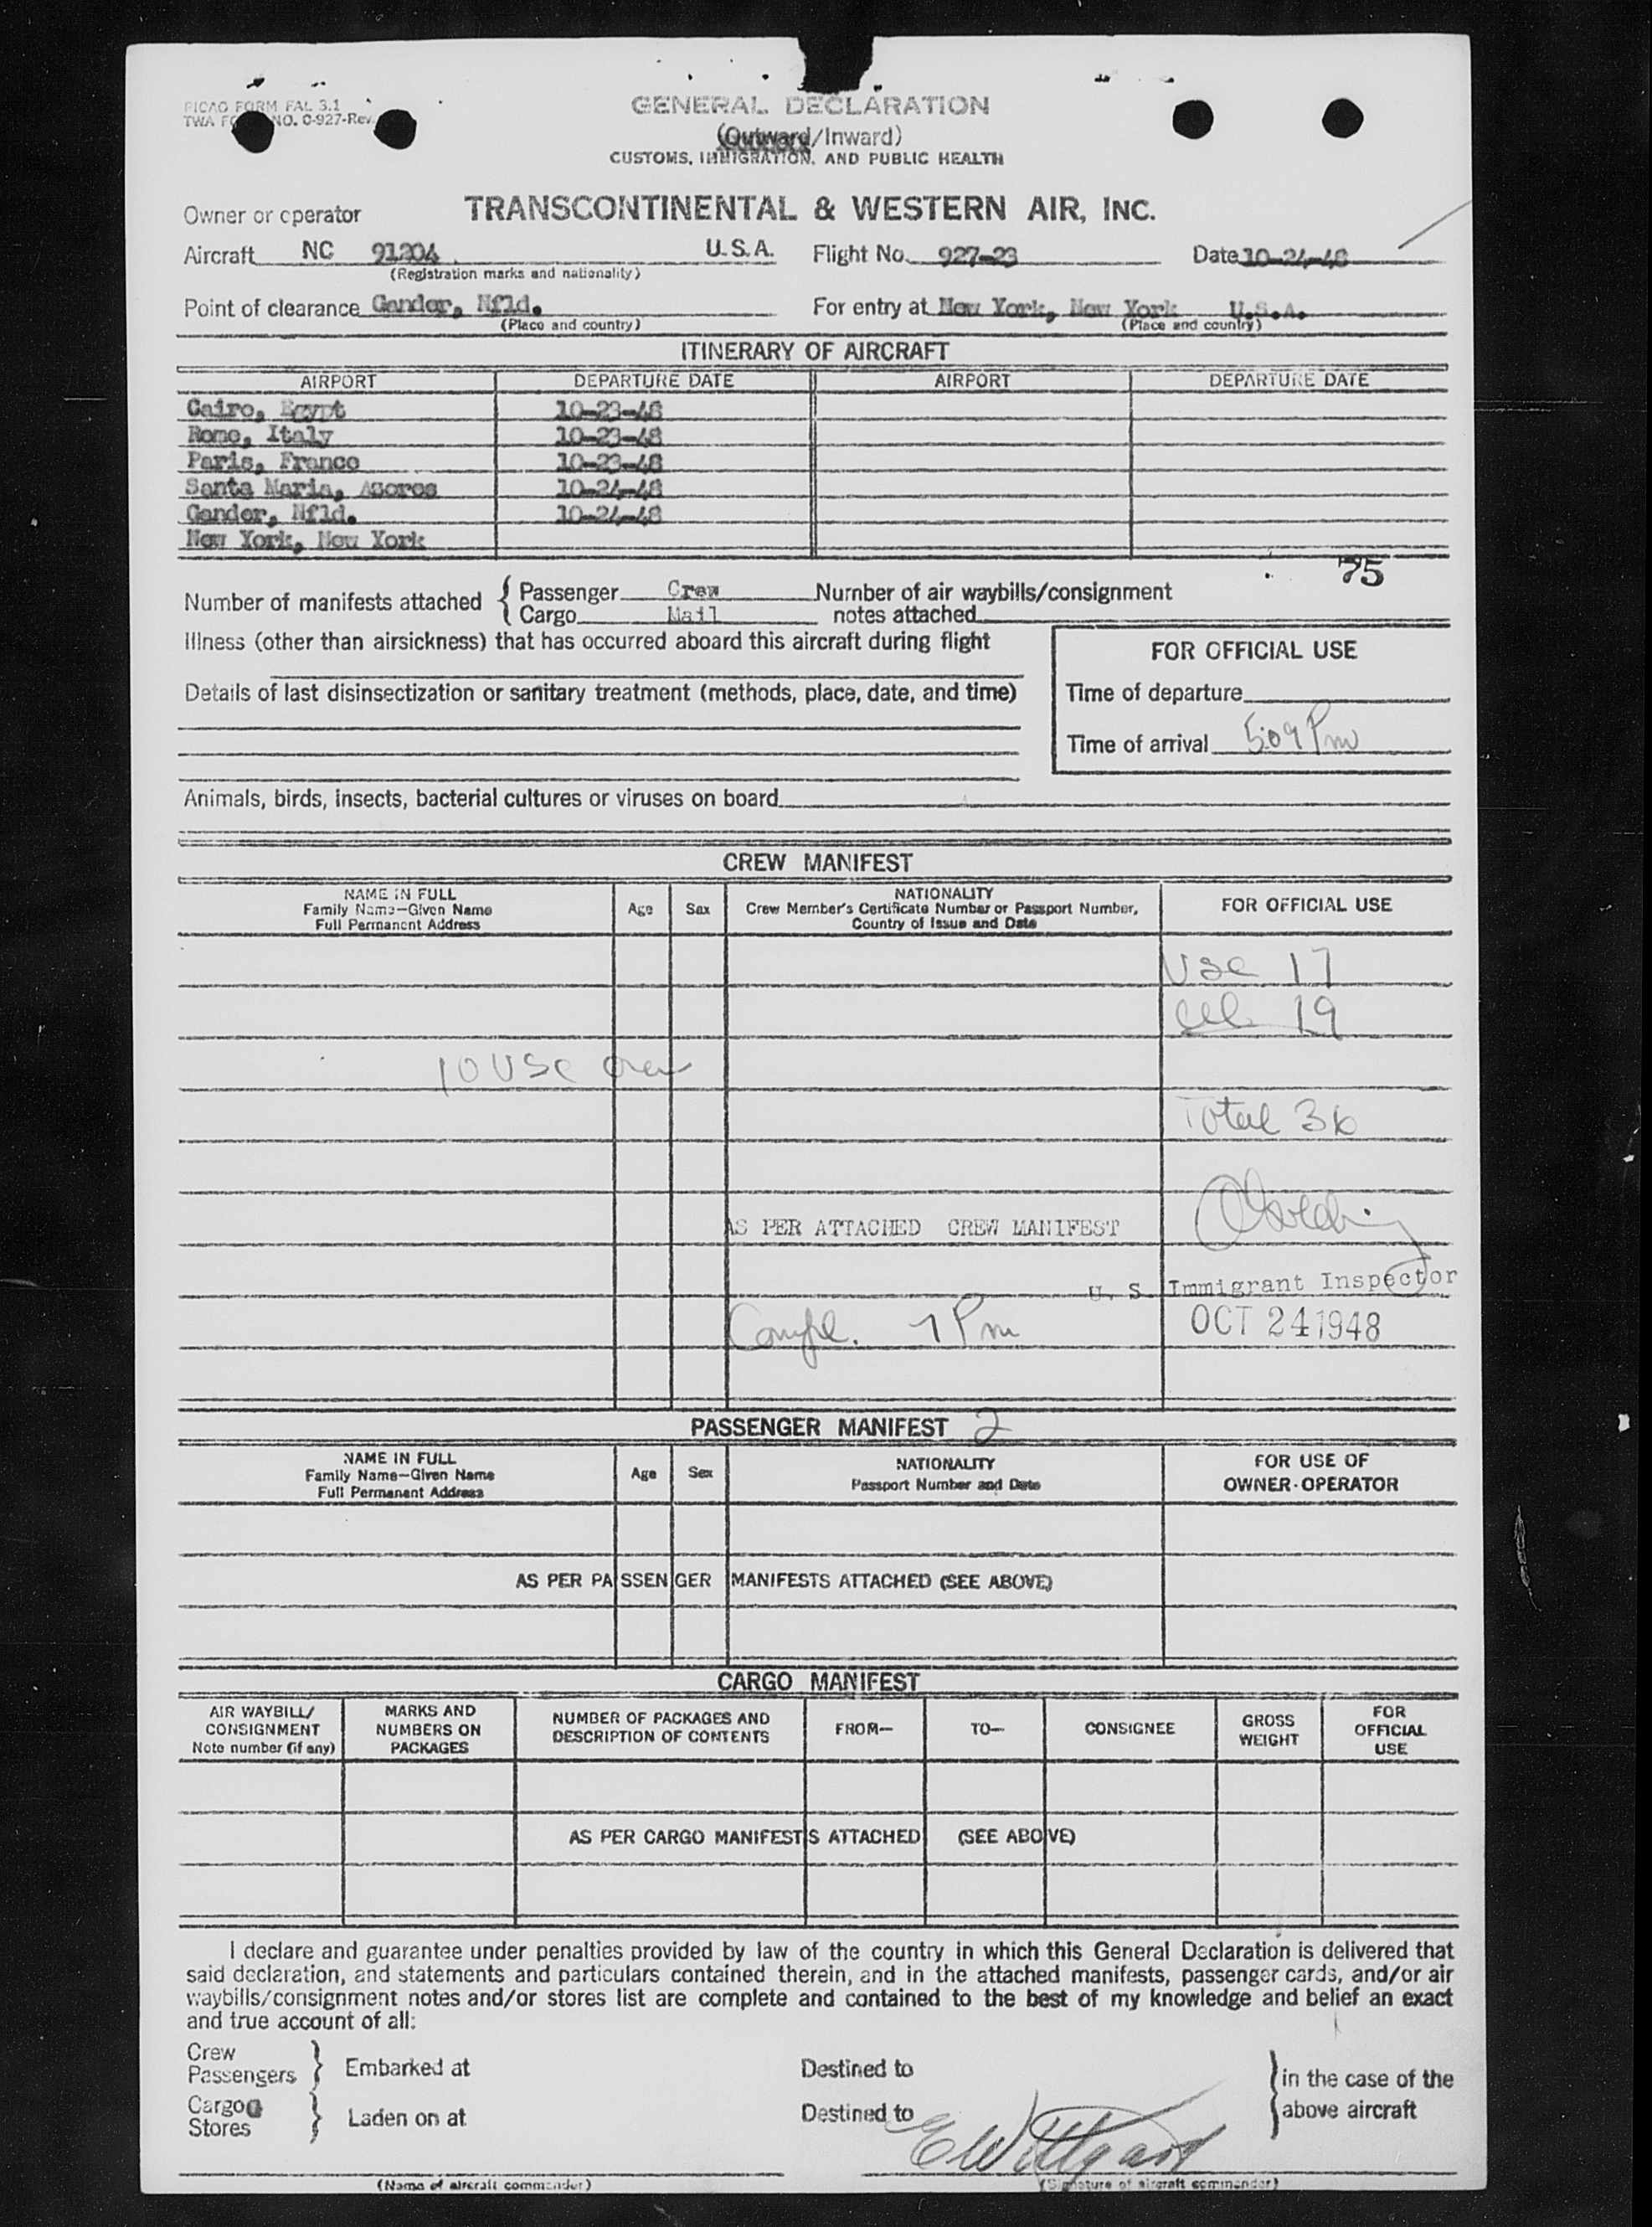 PICAO FORM FAL 3.1
TWA FO NO. O-927-Rev.
GENERAL DECLARATION
(Outward/Inward)
CUSTOMS, IMMIGRATION, AND PUBLIC HEALTH
Owner or operator TRANSCONTINENTAL & WESTERN AIR, INC.
Aircraft NC 91204 U.S.A. Flight No. 927-23 Date 10-24-48
(Registration marks and nationality)
Point of clearance Gander, Nfld. For entry at New York, New York U.S.A.
(Place and country) (Place and country)
ITINERARY OF AIRCRAFT
AIRPORT DEPARTURE DATE AIRPORT DEPARTURE DATE
Cairo, Egypt 10-23-48
Rome, Italy 10-23-48
Paris, France 10-23-48
Santa Maria, Azores 10-24-48
Gander, Nfld. 10-24-48
New York, New York
75
Number of manifests attached { Passenger Crew Number of air waybills/consignment
Cargo Mail notes attached
Illness (other than airsickness) that has occurred aboard this aircraft during flight
FOR OFFICIAL USE
Details of last disinsectization or sanitary treatment (methods, place, date, and time)
Time of departure
Time of arrival 5:09 Pm
Animals, birds, insects, bacterial cultures or viruses on board
CREW MANIFEST
NAME IN FULL
Family Name—Given Name
Full Permanent Address
Age Sex
NATIONALITY
Crew Member's Certificate Number or Passport Number,
Country of Issue and Date
FOR OFFICIAL USE
USC 17
19
10 USC crew
Total 36
AS PER ATTACHED CREW MANIFEST
U. S. Immigrant Inspector
Compl. 7 Pm OCT 24 1948
PASSENGER MANIFEST 2
NAME IN FULL
Family Name—Given Name
Full Permanent Address
Age Sex
NATIONALITY
Passport Number and Date
FOR USE OF
OWNER-OPERATOR
AS PER PASSENGER MANIFESTS ATTACHED (SEE ABOVE)
CARGO MANIFEST
AIR WAYBILL/
CONSIGNMENT
Note number (if any)
MARKS AND
NUMBERS ON
PACKAGES
NUMBER OF PACKAGES AND
DESCRIPTION OF CONTENTS
FROM—
TO—
CONSIGNEE
GROSS
WEIGHT
FOR
OFFICIAL
USE
AS PER CARGO MANIFESTS ATTACHED (SEE ABOVE)
I declare and guarantee under penalties provided by law of the country in which this General Declaration is delivered that
said declaration, and statements and particulars contained therein, and in the attached manifests, passenger cards, and/or air
waybills/consignment notes and/or stores list are complete and contained to the best of my knowledge and belief an exact
and true account of all:
Crew
Passengers } Embarked at Destined to } in the case of the
Cargo
Stores } Laden on at Destined to above aircraft
(Name of aircraft commander) (Signature of aircraft commander)